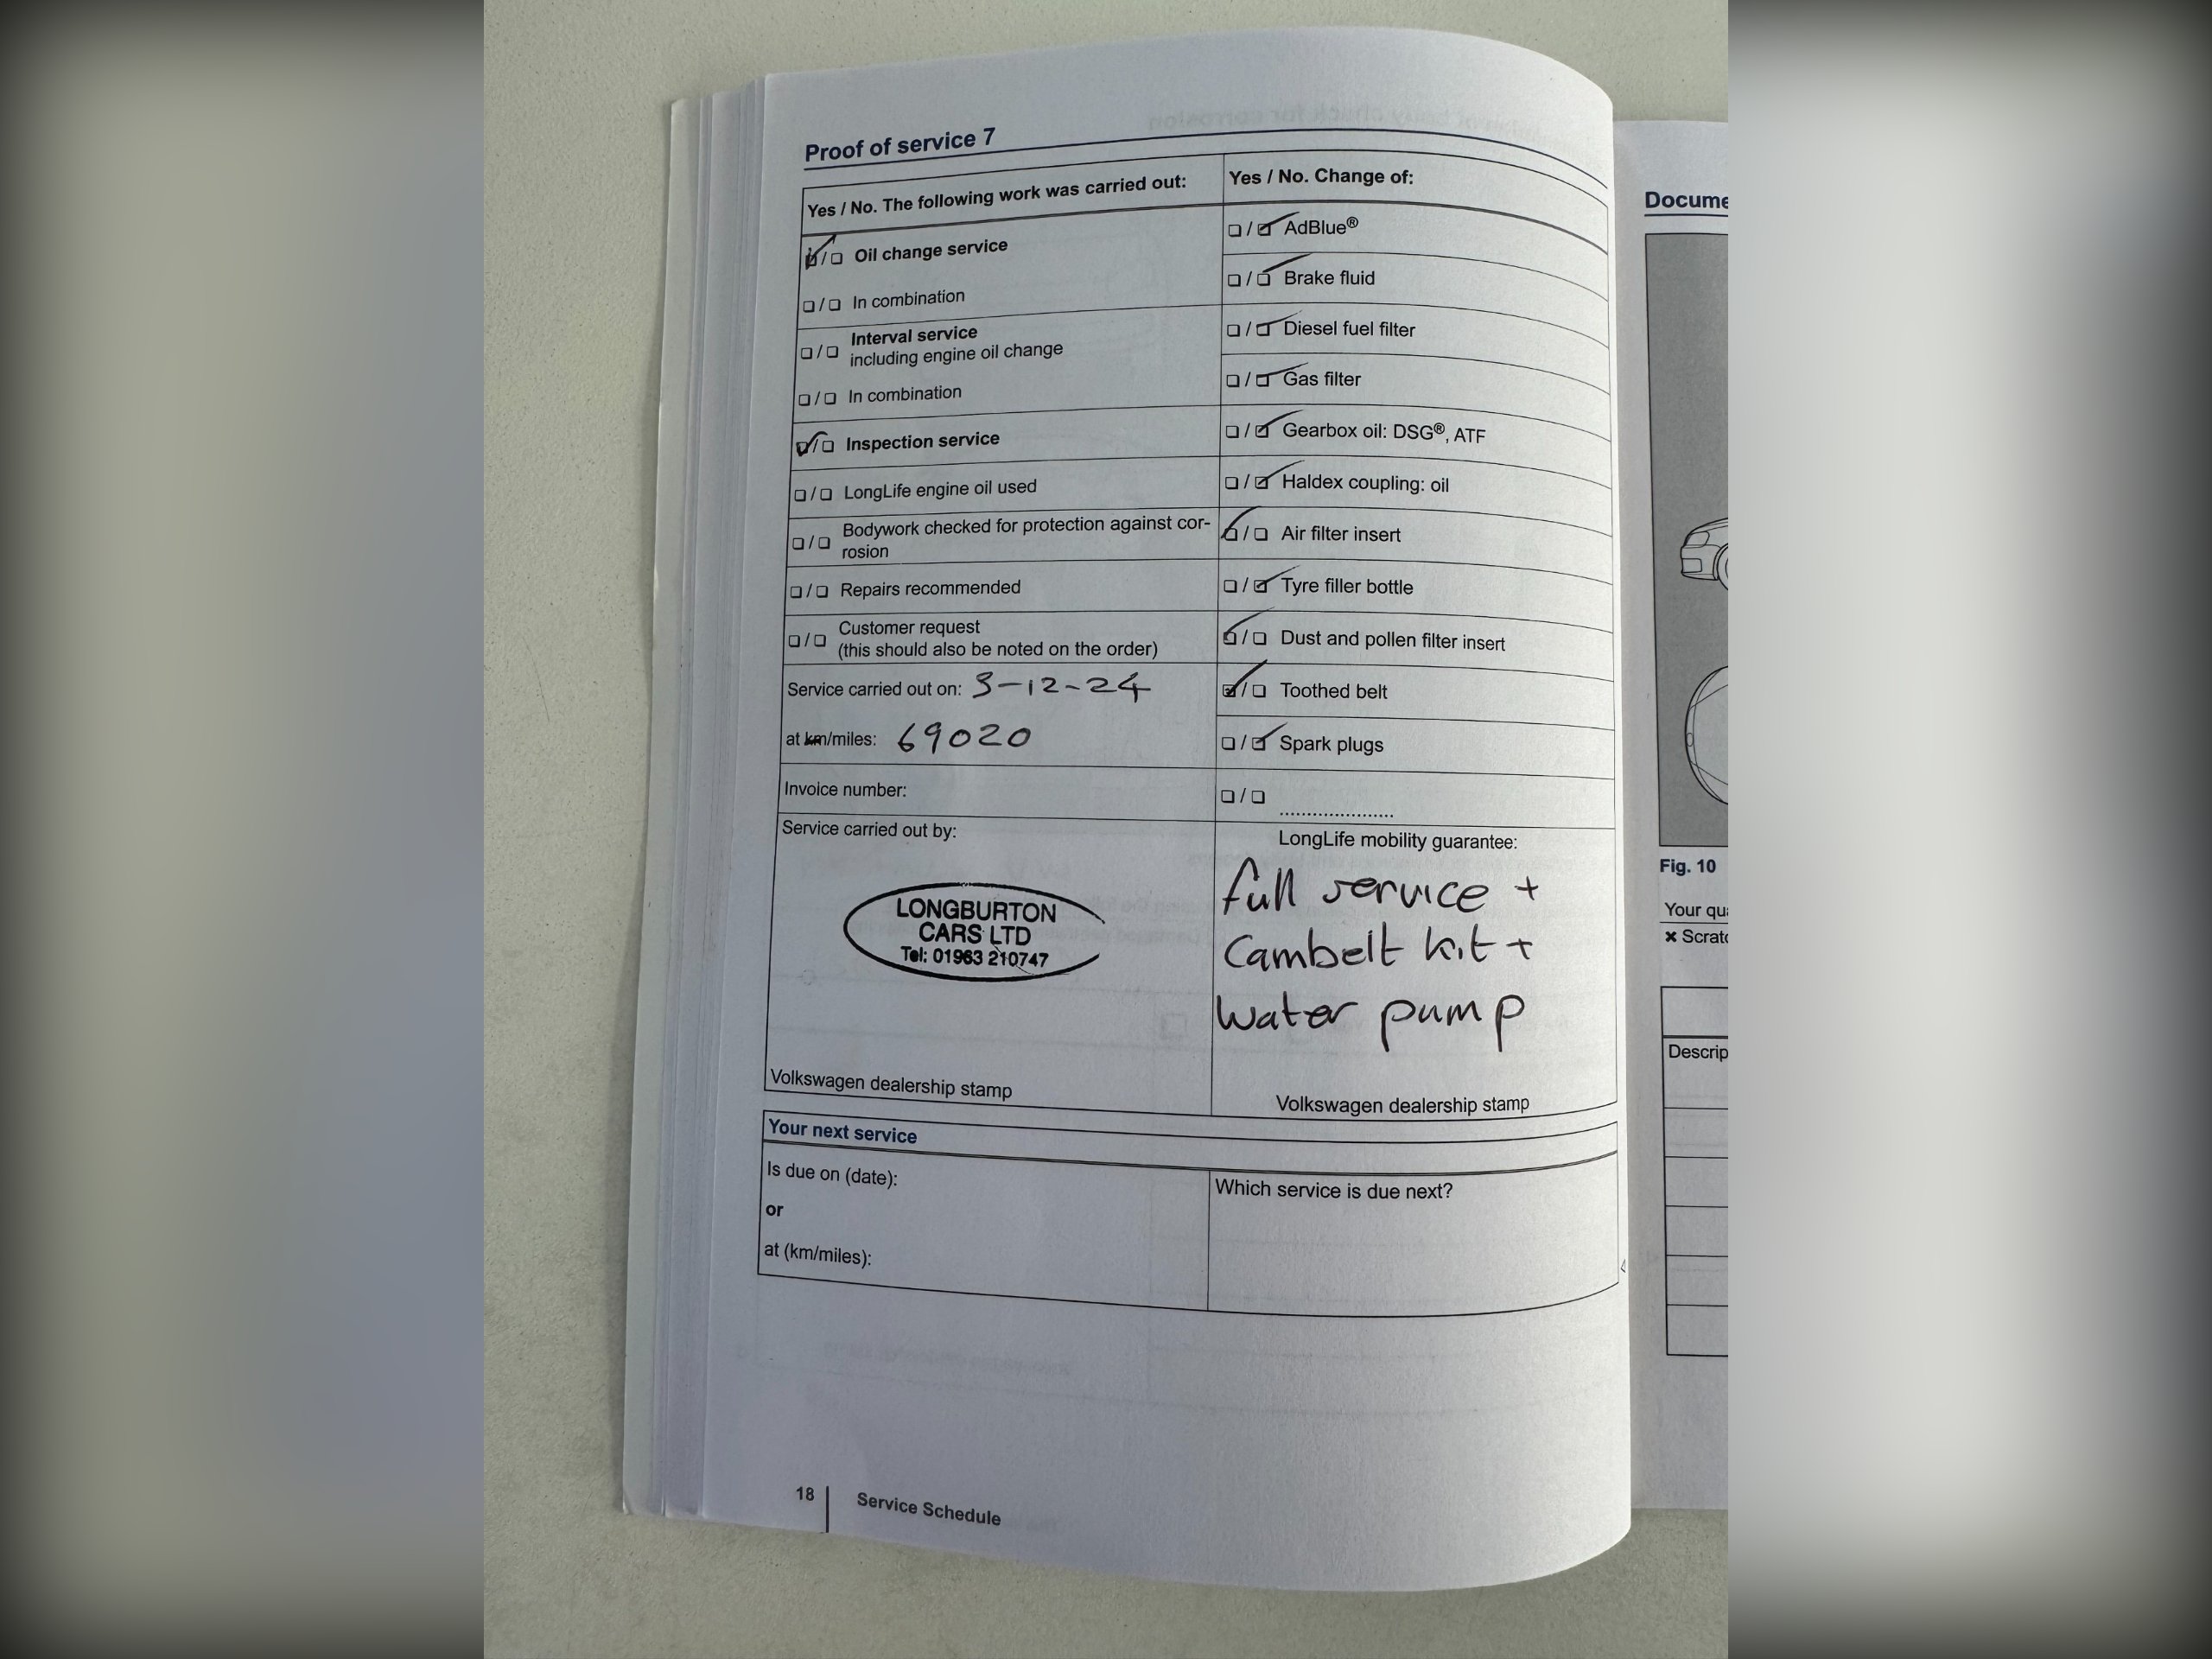 Proof of service 7
Yes / No. The following work was carried out:
☑/☐ Oil change service
☐/☐ In combination
☐/☐ Interval service
including engine oil change
☐/☐ In combination
☑/☐ Inspection service
☐/☐ LongLife engine oil used
☐/☐ Bodywork checked for protection against cor-
rosion
☐/☐ Repairs recommended
☐/☐ Customer request
(this should also be noted on the order)
Service carried out on: 3-12-24
at km/miles: 69020
Invoice number:
Service carried out by:
LONGBURTON
CARS LTD
Tel: 01963 210747
Volkswagen dealership stamp
Yes / No. Change of:
☐/☑ AdBlue®
☐/☑ Brake fluid
☐/☑ Diesel fuel filter
☐/☑ Gas filter
☐/☑ Gearbox oil: DSG®, ATF
☐/☑ Haldex coupling: oil
☑/☐ Air filter insert
☐/☑ Tyre filler bottle
☑/☐ Dust and pollen filter insert
☑/☐ Toothed belt
☐/☑ Spark plugs
☐/☐ .....................
LongLife mobility guarantee:
full service +
Cambelt kit +
Water pump
Volkswagen dealership stamp
Your next service
Is due on (date):
or
at (km/miles):
Which service is due next?
18 Service Schedule
Fig. 10